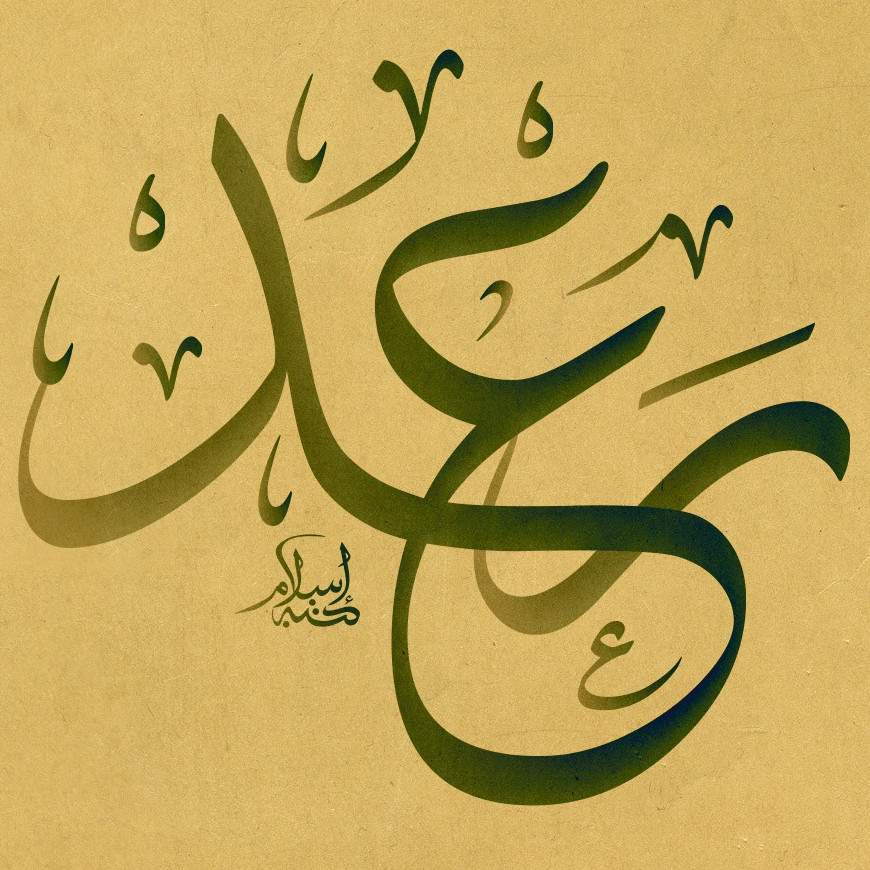 رعد
كتبه إسلام